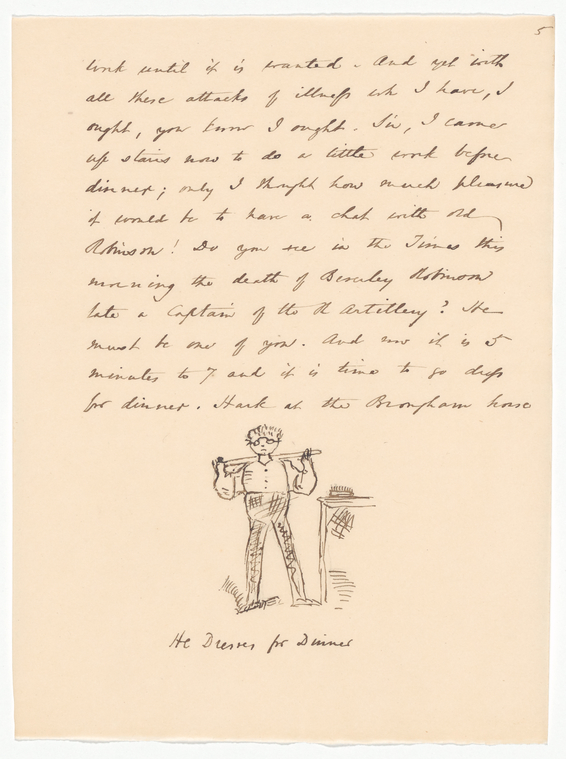 5
work until it is wanted. And yet with
all these attacks of illness wh I have, I
ought, you know I ought. Sir, I came
up stairs now to do a little work before
dinner; only I thought how much pleasure
it would be to have a chat with old
Robinson! Do you see in the Times this
morning the death of Beverley Robinson
late a Captain of the R Artillery? He
must be one of you. And now it is 5
minutes to 7 and it is time to go dress
for dinner. Hark at the Brougham horse
He Dresses for Dinner